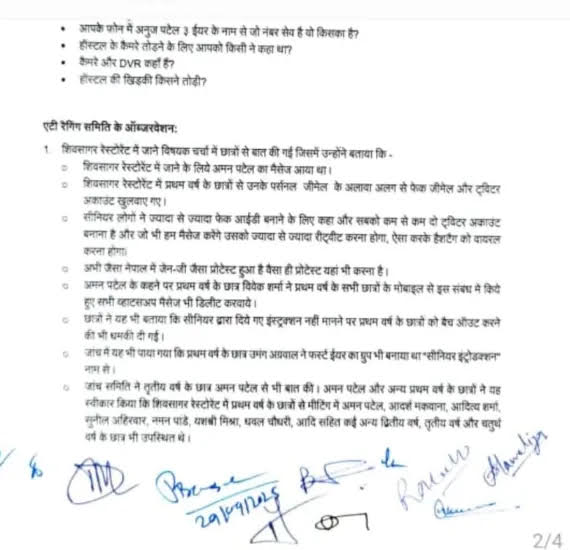 • आपके फोन में अनुज पटेल ३ ईयर के नाम से जो नंबर सेव है वो किसका है?
• हॉस्टल के कैमरे तोडने के लिए आपको किसी ने कहा था?
• कैमरे और DVR कहाँ हैं?
• हॉस्टल की खिड़की किसने तोड़ी?
एटी रेगिंग समिति के ऑब्जरवेशन:
1. शिवसागर रेस्टोरेंट में जाने विषयक चर्चा में छात्रों से बात की गई जिसमें उन्होंने बताया कि -
○ शिवसागर रेस्टोरेंट में जाने के लिये अमन पटेल का मैसेज आया था।
○ शिवसागर रेस्टोरेंट में प्रथम वर्ष के छात्रों से उनके पर्सनल जीमेल के अलावा अलग से फेक जीमेल और ट्विटर
अकाउंट खुलवाए गए।
○ सीनियर लोगों ने ज्यादा से ज्यादा फेक आईडी बनाने के लिए कहा और सबको कम से कम दो ट्विटर अकाउंट
बनाना है और जो भी हम मैसेज करेंगे उसको ज्यादा से ज्यादा रीट्वीट करना होगा, ऐसा करके हैशटैग को वायरल
करना होगा।
○ अभी जैसा नेपाल में जेन-जी जैसा प्रोटेस्ट हुआ है वैसा ही प्रोटेस्ट यहां भी करना है।
○ अमन पटेल के कहने पर प्रथम वर्ष के छात्र विवेक शर्मा ने प्रथम वर्ष के सभी छात्रों के मोबाइल से इस संबंध मे किये
हुए सभी व्हाटसअप मैसेज भी डिलीट करवाये।
○ छात्रों ने यह भी बताया कि सीनियर द्वारा दिये गए इंस्ट्रक्शन नही मानने पर प्रथम वर्ष के छात्रों को बैच ऑउट करने
की भी धमकी दी गई।
○ जांच में यह भी पाया गया कि प्रथम वर्ष के छात्र उमंग अग्रवाल ने फर्स्ट ईयर का ग्रुप भी बनाया था "सीनियर इंट्रोडक्शन"
नाम से।
○ जांच समिति ने तृतीय वर्ष के छात्र अमन पटेल से भी बात की। अमन पटेल और अन्य प्रथम वर्ष के छात्रों ने यह
स्वीकार किया कि शिवसागर रेस्टोरेंट में प्रथम वर्ष के छात्रों से मीटिंग में अमन पटेल, आदर्श मकवाना, आदित्य शर्मा,
सुनील अहिरवार, नमन पांडे, यशबी मिश्रा, धवल चौधरी, आदि सहित कई अन्य द्वितीय वर्ष, तृतीय वर्ष और चतुर्थ
वर्ष के छात्र भी उपस्थित थे।
29/09/2025
2/4